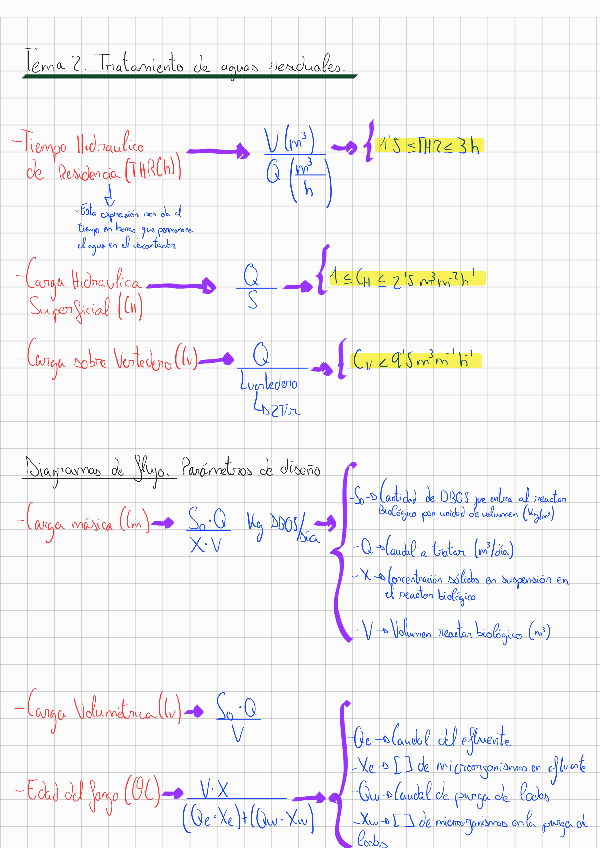 Tema 2. Tratamiento de aguas residuales.
-Tiempo Hidraulico de Residencia (THR(h)) → V (m³) / Q (m³/h) → { 1'5 ≤ THR ≤ 3h
-Esta expresión nos da el
tiempo en horas que permanece
el agua en el decantador
-Carga Hidraulica Superficial (CH) → Q / S → { 1 ≤ CH ≤ 2'5 m³m⁻²h⁻¹
Carga sobre Vertedero (Cv) → Q / Lvertedero → { Cv < 9'5 m³m⁻¹h⁻¹
↳ 2πr
Diagramas de flujo. Parámetros de diseño
-Carga másica (Cm) → So·Q / X·V Kg DBO5/día → {
-So → Cantidad de DBO5 que entra al reactor
Biológico por unidad de volumen (Kg/m³)
-Q → Caudal a tratar (m³/día)
-X → Concentración sólidos en suspensión en
el reactor biológico
-V → Volumen reactor biológico (m³)
-Carga Volumétrica (Cv) → So·Q / V
-Edad del fango (θC) → V·X / (Qe·Xe)+(Qw·Xw) → {
Qe → Caudal del efluente
-Xe → [ ] de microorganismos en efluente
Qw → Caudal de purga de lodos
-Xw → [ ] de microorganismos en la purga de
lodos